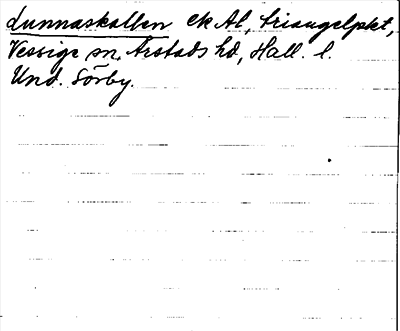 Lunnaskallen ek Al, triangelpkt,
Vessige sn, Årstads hd, Hall. l.
Und. Sörby.